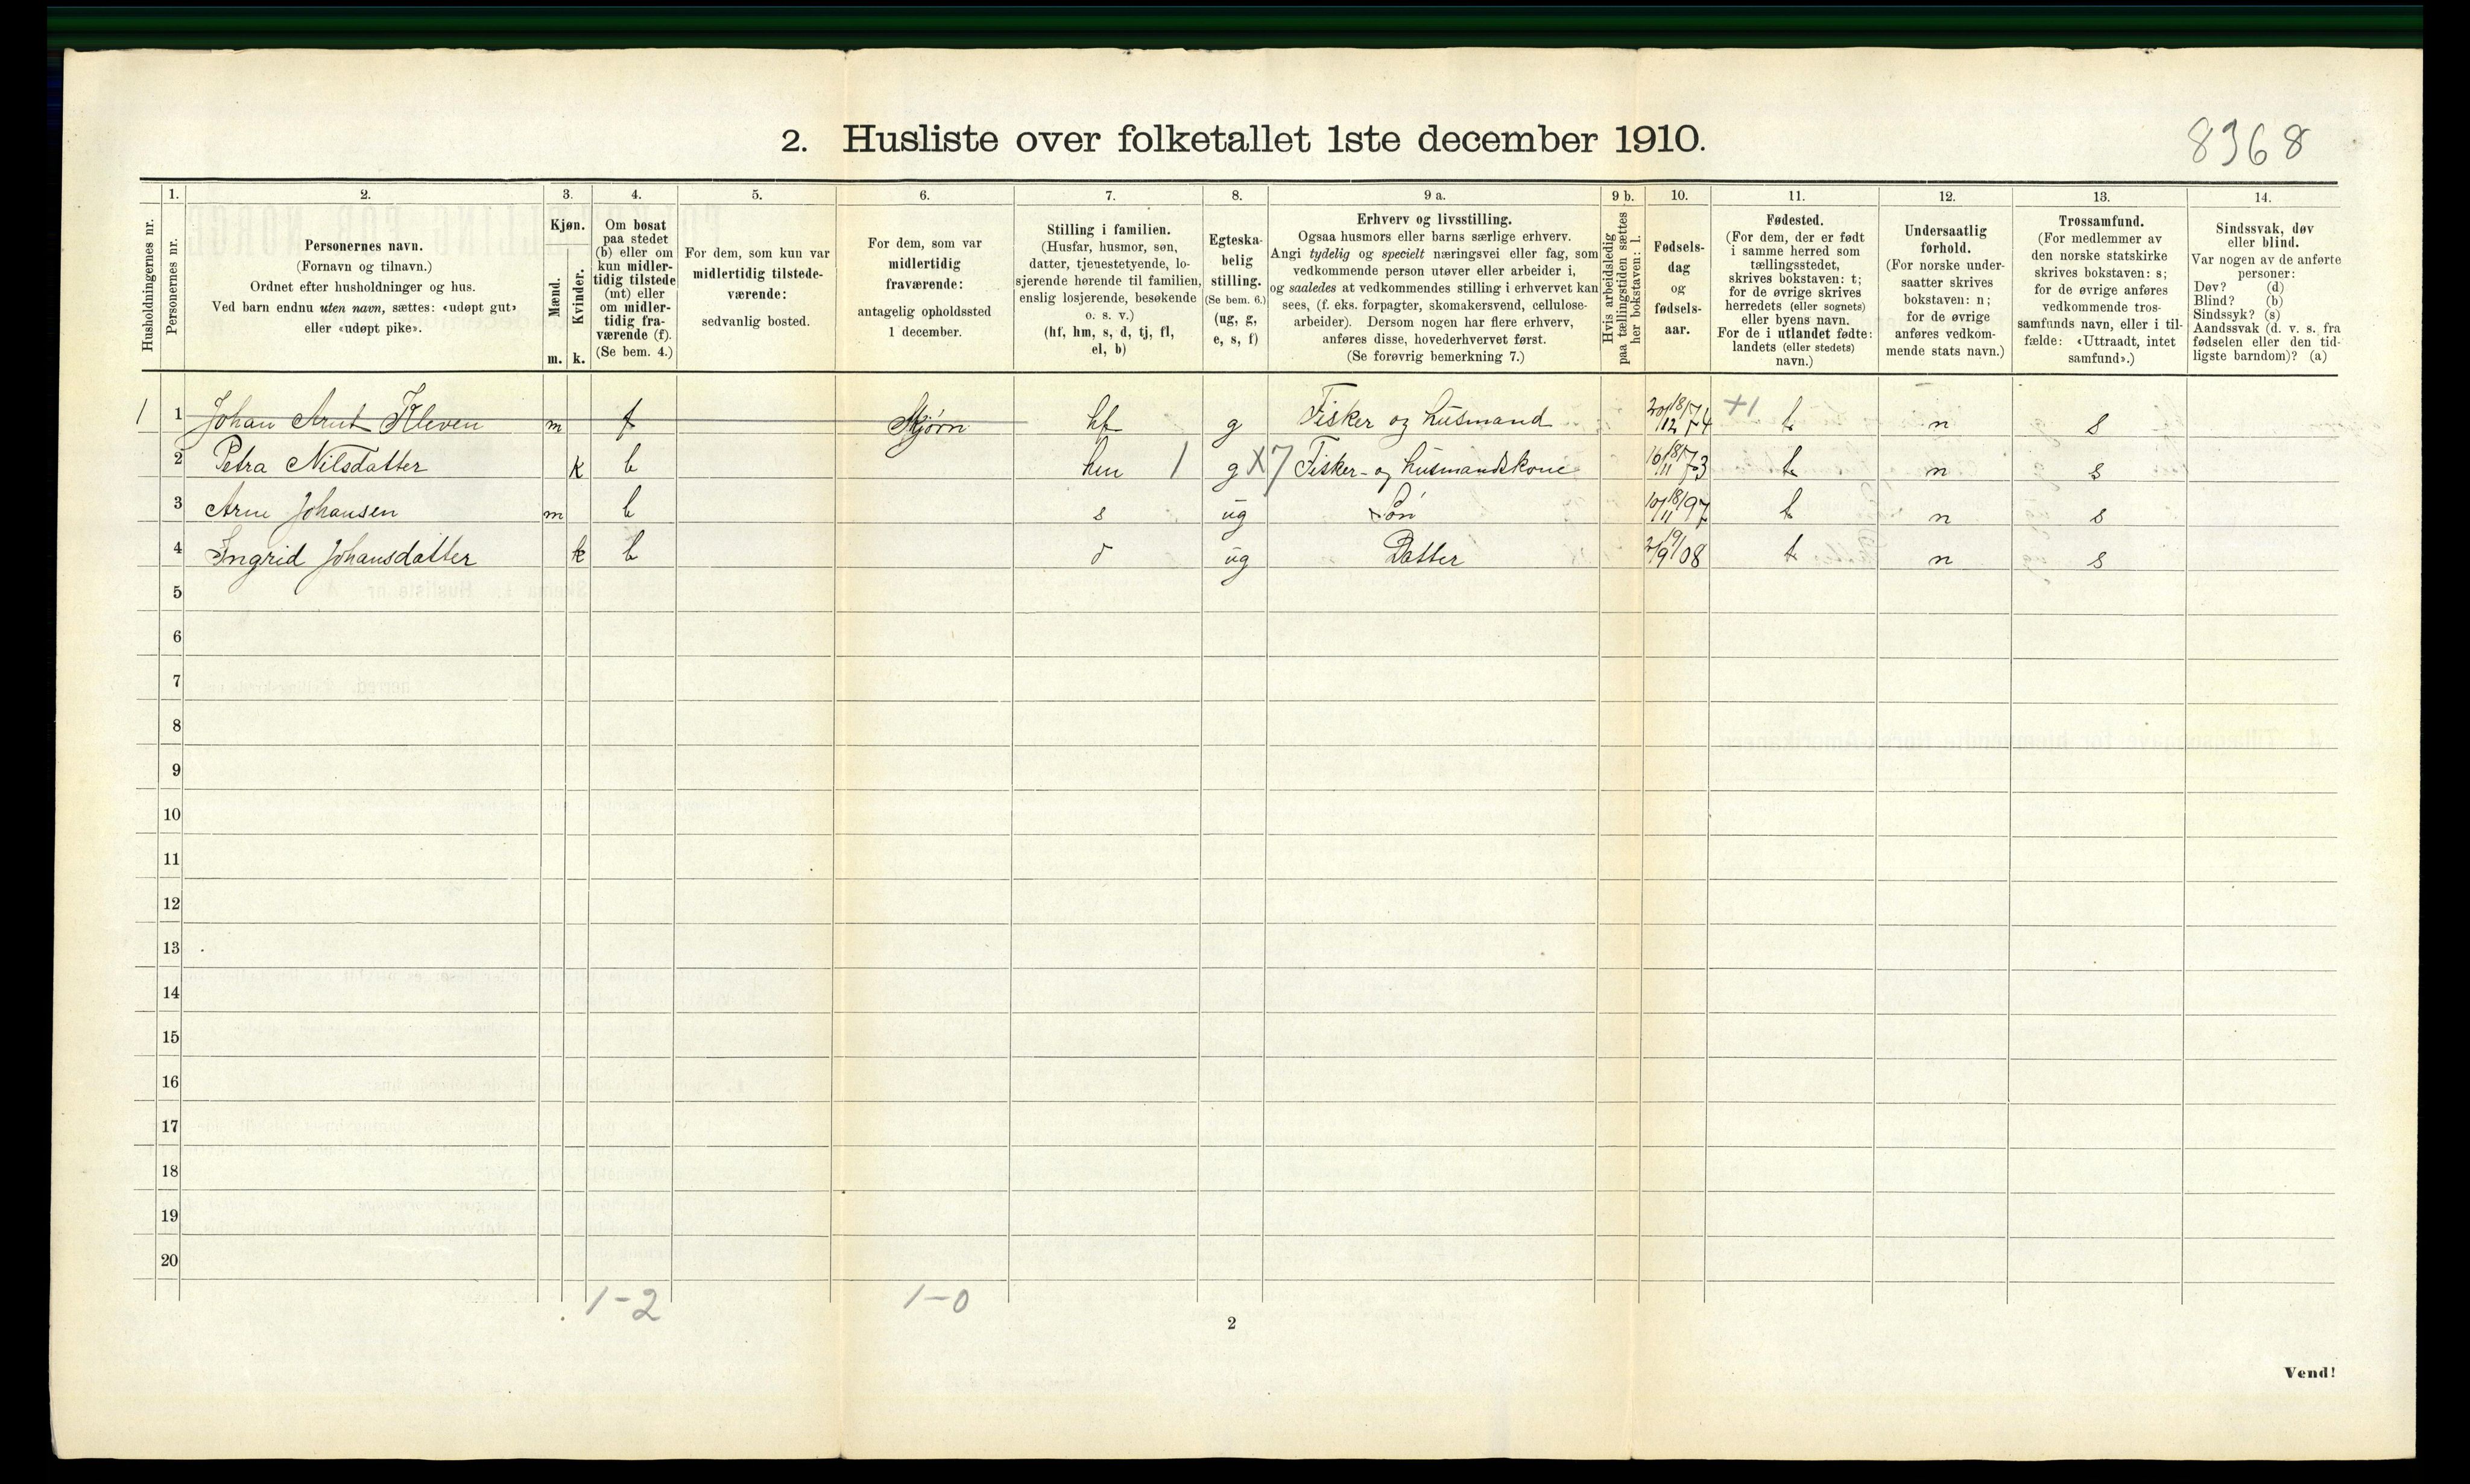 2. Husliste over folketallet 1ste december 1910.
8368
Husholdningernes nr.
1.
Personernes nr.
2.
Personernes navn.
(Fornavn og tilnavn.)
Ordnet efter husholdninger og hus.
Ved barn endnu uten navn, sættes: «udøpt gut»
eller «udøpt pike».
3.
Kjøn.
Mænd.
Kvinder.
m. k.
4.
Om bosat
paa stedet
(b) eller om
kun midler-
tidig tilstede
(mt) eller
om midler-
tidig fra-
værende (f).
(Se bem. 4.)
5.
For dem, som kun var
midlertidig tilstede-
værende:
sedvanlig bosted.
6.
For dem, som var
midlertidig
fraværende:
antagelig opholdssted
1 december.
7.
Stilling i familien.
(Husfar, husmor, søn,
datter, tjenestetyende, lo-
sjerende hørende til familien,
enslig losjerende, besøkende
o. s. v.)
(hf, hm, s, d, tj, fl,
el, b)
8.
Egteska-
belig
stilling.
(Se bem. 6.)
(ug, g,
e, s, f)
9 a.
Erhverv og livsstilling.
Ogsaa husmors eller barns særlige erhverv.
Angi tydelig og specielt næringsvei eller fag, som
vedkommende person utøver eller arbeider i,
og saaledes at vedkommendes stilling i erhvervet kan
sees, (f. eks. forpagter, skomakersvend, cellulose-
arbeider). Dersom nogen har flere erhverv,
anføres disse, hovederhvervet først.
(Se forøvrig bemerkning 7.)
9 b.
Hvis arbeidsledig
paa tællingstiden sættes
her bokstaven: l.
10.
Fødsels-
dag
og
fødsels-
aar.
11.
Fødested.
(For dem, der er født
i samme herred som
tællingsstedet,
skrives bokstaven: t;
for de øvrige skrives
herredets (eller sognets)
eller byens navn.
For de i utlandet fødte:
landets (eller stedets)
navn.)
12.
Undersaatlig
forhold.
(For norske under-
saatter skrives
bokstaven: n;
for de øvrige
anføres vedkom-
mende stats navn.)
13.
Trossamfund.
(For medlemmer av
den norske statskirke
skrives bokstaven: s;
for de øvrige anføres
vedkommende tros-
samfunds navn, eller i til-
fælde: «Uttraadt, intet
samfund».)
14.
Sindssvak, døv
eller blind.
Var nogen av de anførte
personer:
Døv? (d)
Blind? (b)
Sindssyk? (s)
Aandssvak (d. v. s. fra
fødselen eller den tid-
ligste barndom)? (a)
1 1 Johan Arnt Kleven m f Mjørn hf g Fisker og husmand 20/12 1874 +1 t n s
2 Petra Nilsdatter k b hm 1 g X7 Fisker- og husmandskone 16/11 1873 t n s
3 Arne Johansen m b s ug Søn 10/11 1897 t n s
4 Ingrid Johansdatter k b d ug Datter 2/9 1908 t n s
5
6
7
8
9
10
11
12
13
14
15
16
17
18
19
20
1-2 1-0
2
Vend!